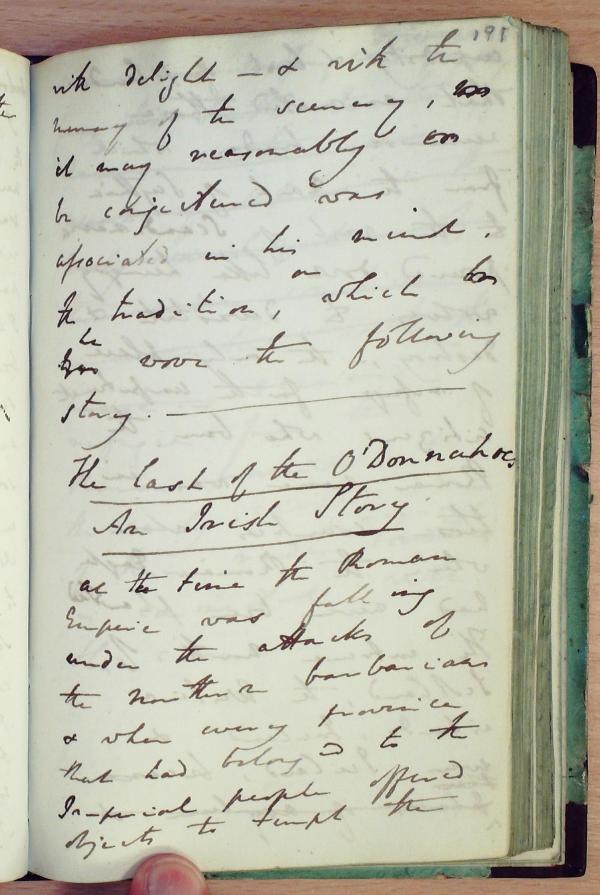 191
with delight — & with the
memory of the scenery,
it may reasonably
be conjectured was
associated in his mind.
on
the tradition, which
he
wove the following
story. —
The last of the O'Donnahoes
An Irish Story
at the time the Roman
Empire was falling
under the attacks of
the northern barbarians
& when every province
that had belonged to the
Imperial people offered
objects to tempt the